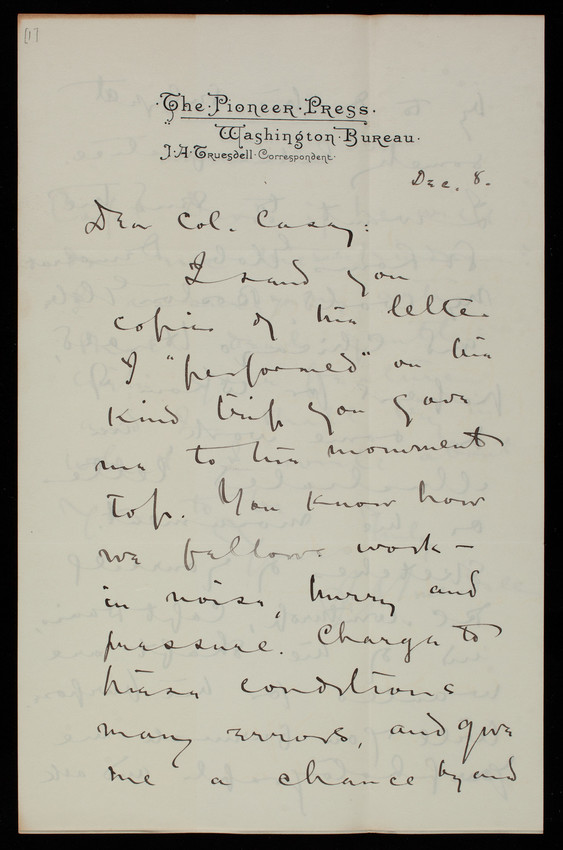 [1]
The Pioneer Press.
Washington Bureau.
J. A. Truesdell. Correspondent.
Dec. 8.
Dear Col. Casey:
I send you
copies of the letter
I "performed" on the
kind trip you gave
me to the monument
top. You know how
we fellows work —
in noise, hurry and
pressure. Charge to
these conditions
many errors, and give
me a chance by and